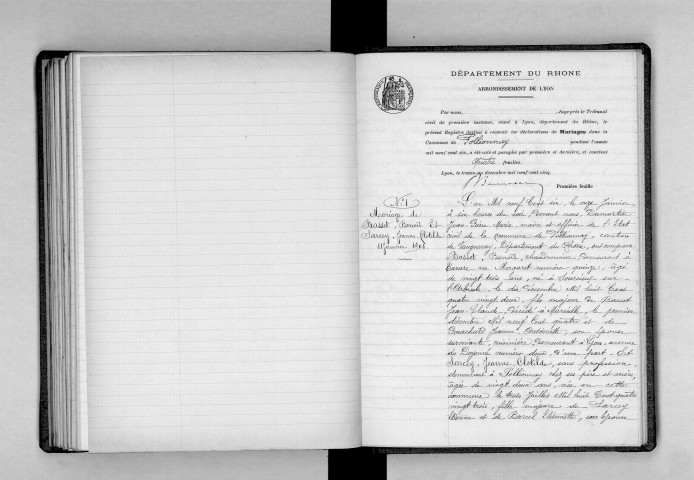 DÉPARTEMENT DU RHONE
ARRONDISSEMENT DE LYON
Par nous, Juge près le Tribunal
civil de première instance, séant à Lyon, département du Rhône, le
présent Registre destiné à recevoir les déclarations de Mariages dans la
Commune de Pollionnay pendant l'année
mil neuf cent six, a été coté et paraphé par première et dernière, et contient
Quatre feuilles
Lyon, le trente un décembre mil neuf cent cinq.
Première feuille
N° 1
Mariage de
Bassot, Benoît Et
Sarcey, Jeanne, Clotilde
11 Janvier 1906
L'an Mil neuf Cent six, le onze Janvier
à six heures du soir, Devant nous, Dumortier
Jean Pierre Marie, maire et officier de l'Etat
civil de la commune de Pollionnay, canton
de Vaugneray, Département du Rhône, ont comparu
Bassot, Benoît, chaudronnier, demeurant à
Tarare rue Margaret numéro quinze, âgé
de vingt trois ans, né à Sourcieux sur
l'Arbresle, le dix Décembre Mil huit Cent
quatre vingt deux, fils majeur de Bassot
Jean Claude, décédé à Marseille, le premier
décembre Mil neuf Cent quatre et de
Jeanne, Antoinette, son épouse
survivante, cuisinière, Demeurant à Lyon, avenue
de Doyenné numéro deux, D'une part. Et
Sarcey, Jeanne, Clotilde, sans profession,
demeurant à Pollionnay chez ses père et mère,
âgée de vingt deux ans, née en cette
commune le trois Juillet Mil huit Cent quatre
vingt trois, fille majeure de Sarcey
Etienne et de Barcel Etiennette, son épouse